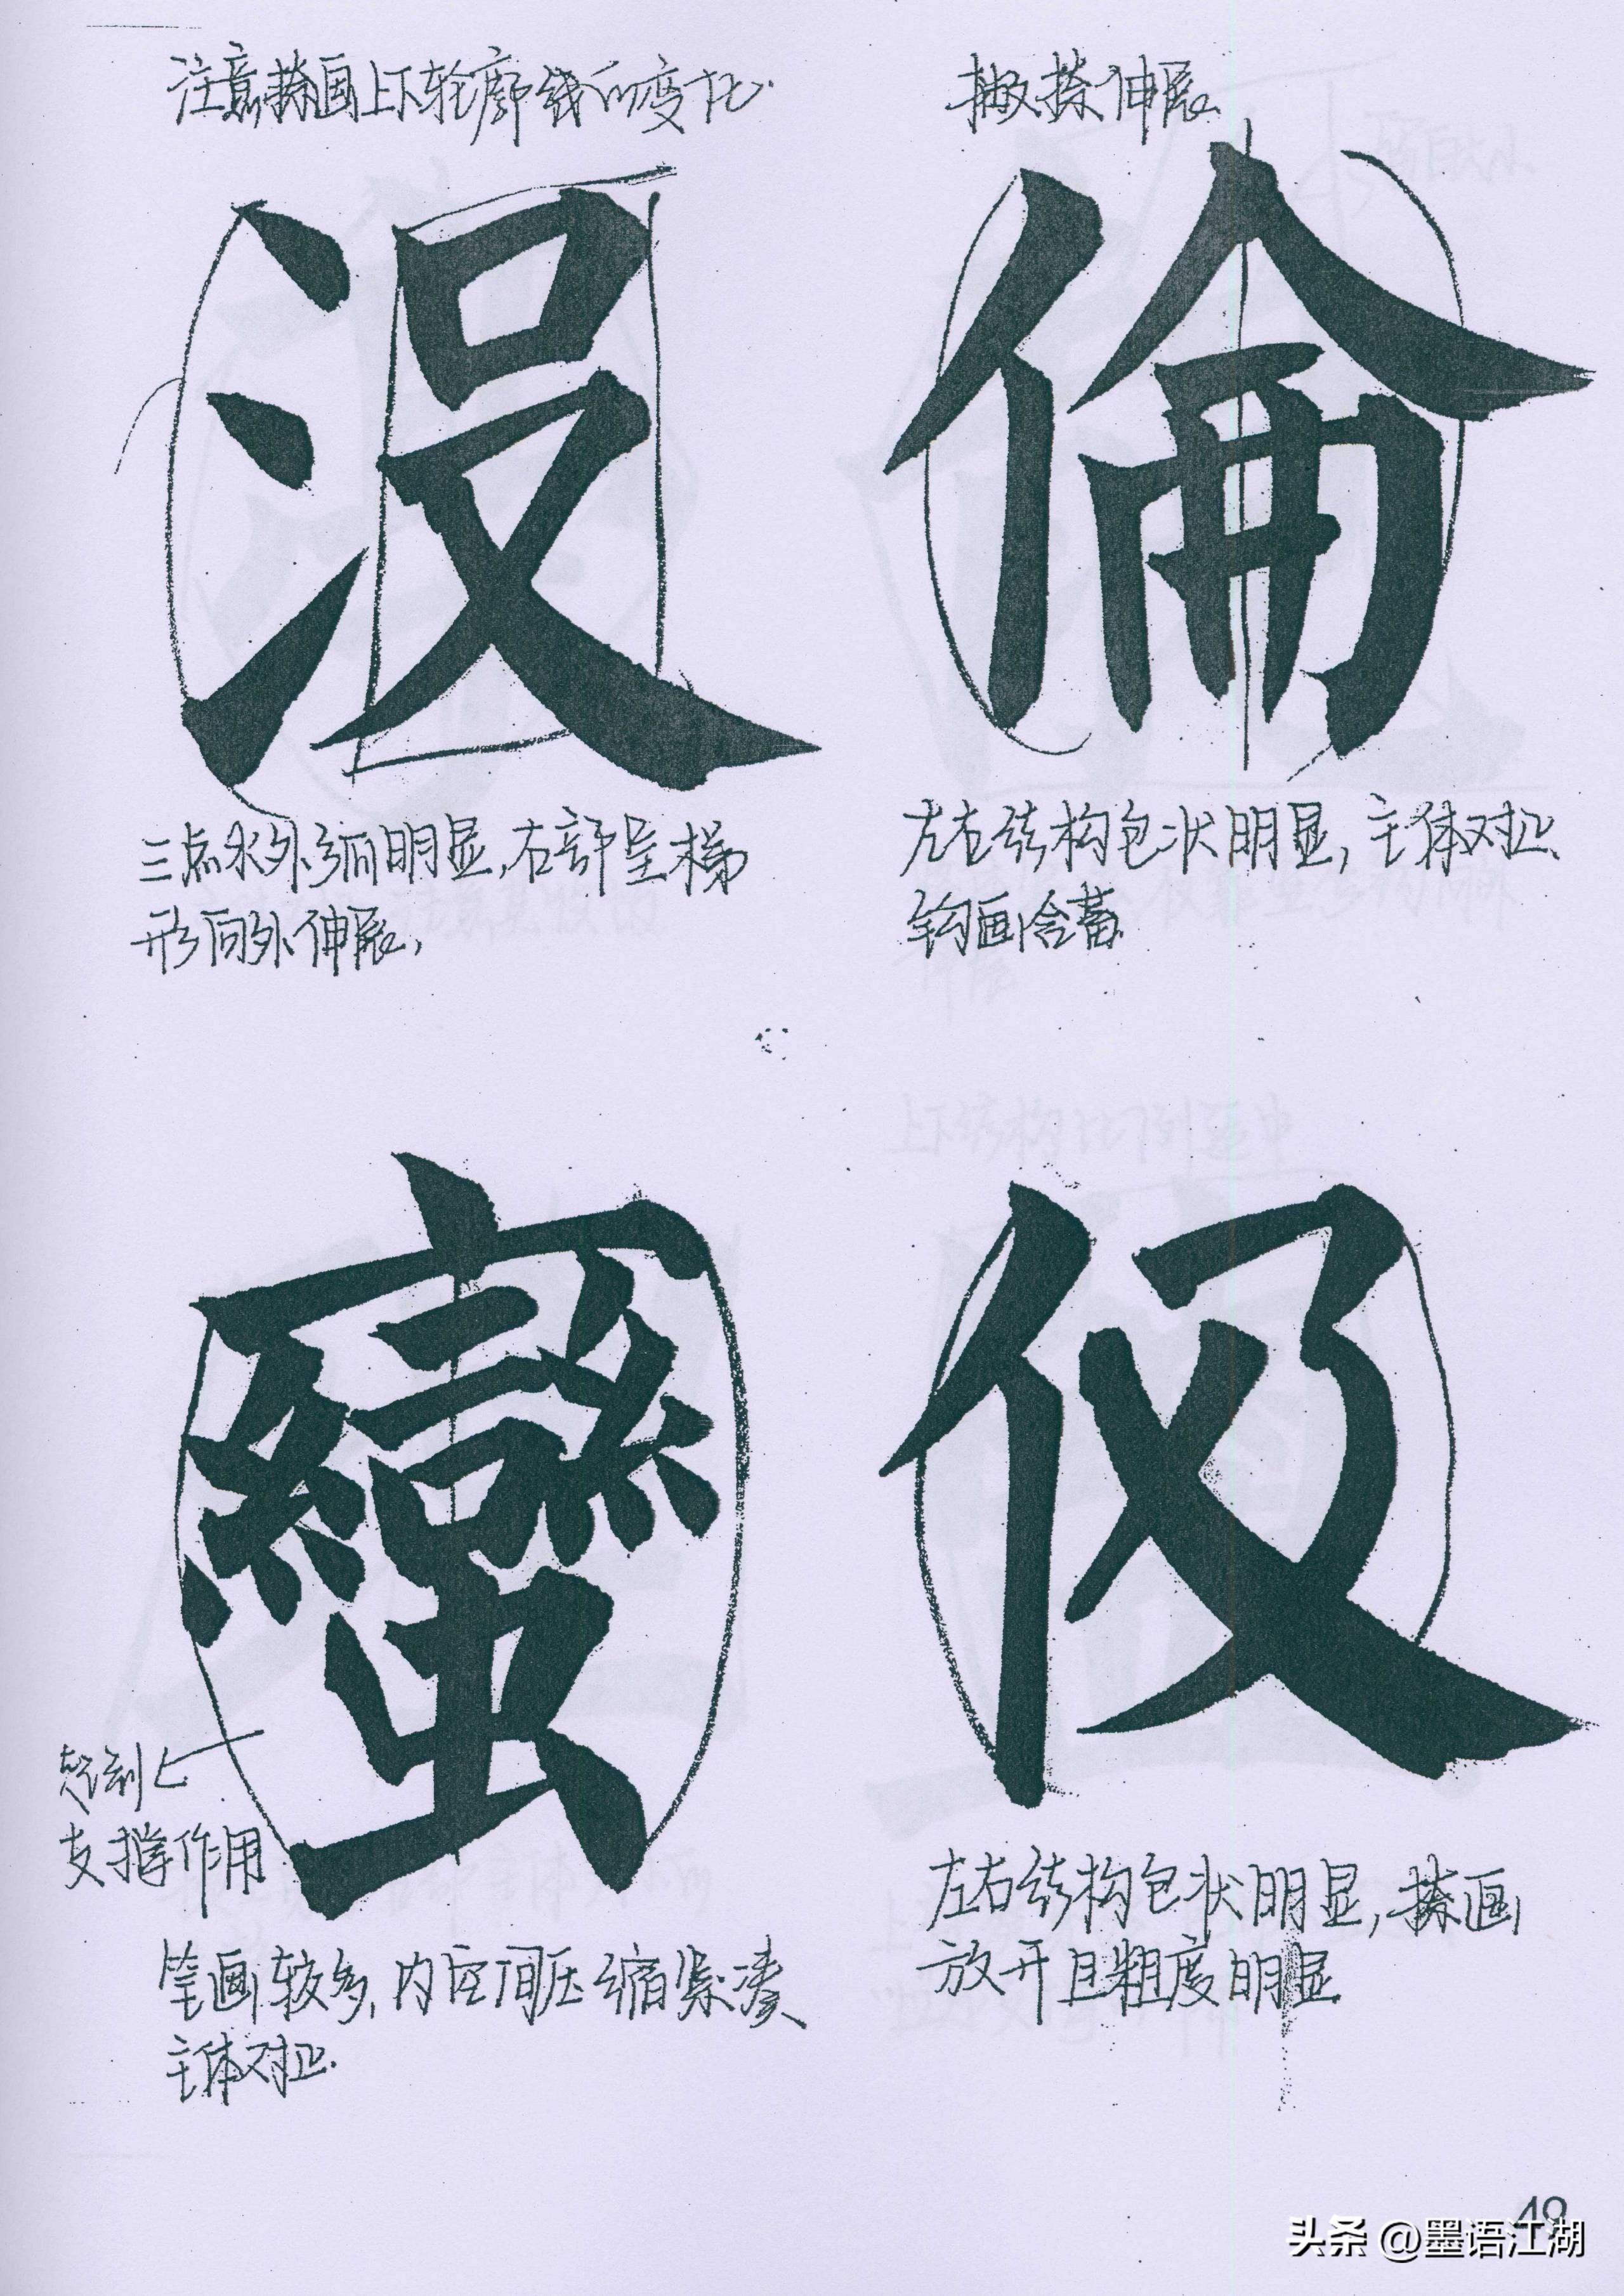 注意捺画上下轮廓线的变化.
撇捺伸展
没
倫
三点水外弧明显,右部呈梯
形向外伸展,
左右结构包状明显,主体对正、
钩画含蓄
蠻
伋
起到
支撑作用
笔画较多,内空间压缩紧凑
主体对正.
左右结构包状明显,捺画
放开且粗度明显
49
头条 @墨语江湖